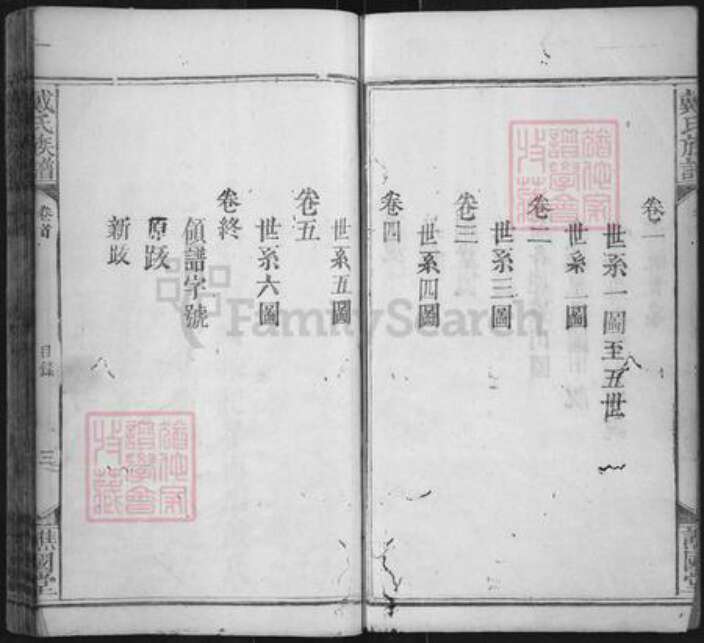 戴氏族譜
卷一
世系一圖至五世
世系二圖
卷二
世系三圖
卷三
世系四圖
卷四
世系五圖
卷五
世系六圖
卷終
領譜字號
原跋
新跋
戴氏族譜
卷首
目錄
三
譙國堂
FamilySearch